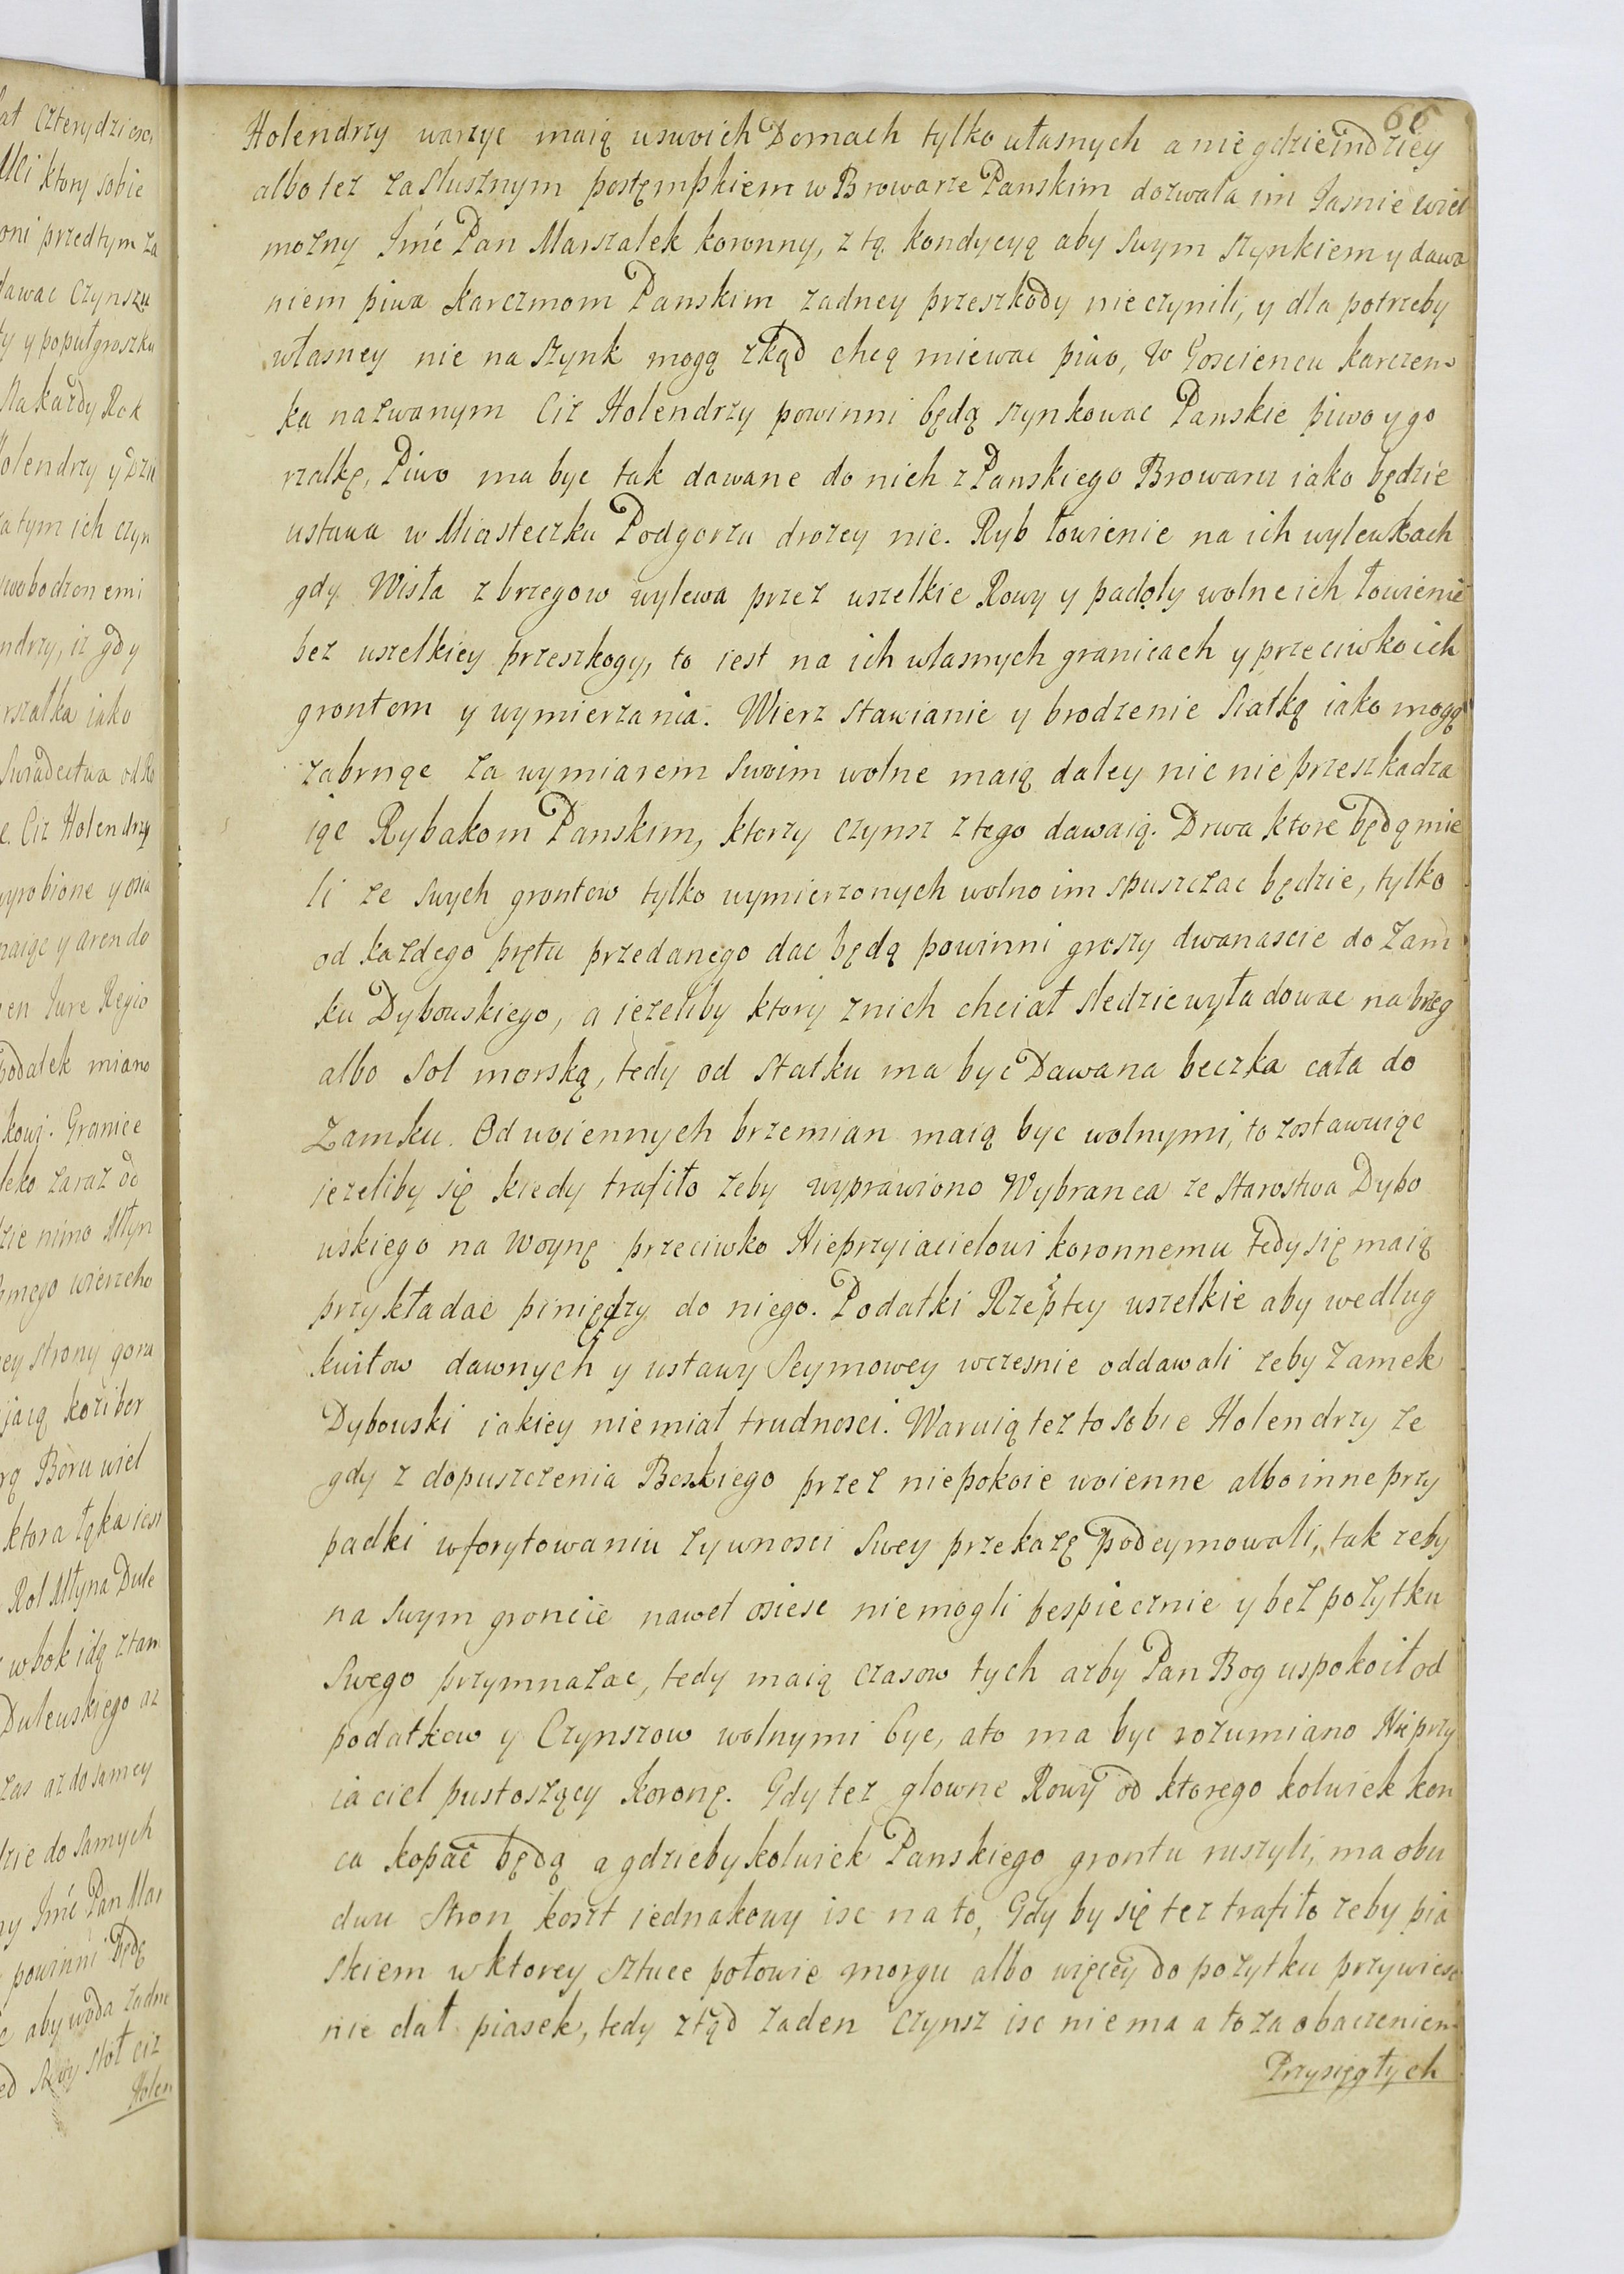 66
Holendrzy warzyc maią uswoich Domach tylko własnych a nie gdzieindziey
albo tez zasłusznym postęmpkiem w Browarze Panskim dozwala im Jasnie wiel
mozny Jmć Pan Marszałek koronny, z tą kondycyą aby swym szynkiem y dawa
niem piwa karczmom Panskim zadney przeszkody nie czynili, y dla potrzeby
własney nie na szynk mogą zkąd chcą miewac piwo, W Gosciencu karczem
ka nazwanym Ciz Holendrzy powinni będą szynkowac Panskie piwo y go
rzałkę, Piwo ma byc tak dawane do nich z Panskiego Browaru iako będzie
ustawa w Miasteczku Podgorzu drozey nie. Ryb łowienie na ich wylewkach
gdy Wisła z brzegow wylewa przez wszelkie Rowy y padoły wolne ich łowienie
bez wszelkiey przeszkogy, to iest na ich własnych granicach y przeciwko ich
grontom y wymierzania. Wierz stawianie y brodzenie siatką iako mogą
zabrnąc za wymiarem swoim wolne maią daley nic nie przeszkadza
iąc Rybakom Panskim, ktorzy czynsz z tego dawaią. Drwa ktore będą mie
li ze swych grontow tylko wymierzonych wolno im spuszczac będzie, tylko
od kazdego pręta przedanego dac będą powinni groszy dwanascie do Zam
ku Dybowskiego, a iezeliby ktory znich chciał sledzie wyładowac na brzeg
albo sol morską, tedy od statku ma byc Dawana beczka cała do
Zamku. Od woiennych brzemian maią byc wolnymi, to zostawuiąc
iezeliby się kiedy trafiło zeby wyprawiono Wybranca ze starostwa Dybo
wskiego na Woynę przeciwko Nieprzyiacielowi koronnemu tedy się maią
przykładac piniędzy do niego. Podatki Rzeptey wszelkie aby według
kwitow dawnych y ustawy Seymowey wczesnie oddawali zeby Zamek
Dybowski iakiey niemiał trudnosci. Waruią tez to sobie Holendrzy ze
gdy z dopuszczenia Boskiego przez niepokoie woienne albo inne przy
padki wforytowaniu zywnosci swey przekazę podeymowali, tak zeby
na swym groncie nawet osiesc niemogli bespiecznie y bez pozytku
swego przymnazac, tedy maią czasow tych azby Pan Bog uspokoił od
podatkow y Czynszow wolnymi byc, ato ma byc rozumiano Nieprzy
iaciel pustoszący koronę. Gdy tez głowne Rowy od ktorego kolwiek kon
ca kopać będą a gdzieby kolwiek Panskiego grontu ruszyli, ma obu
dwu stron koszt iednakowy isc na to, Gdy by się tez trafiło zeby pia
skiem wktorey sztuce połowie morgu albo więcey do pozytku przywiesc
nie dał piasek, tedy ztąd zaden czynsz isc niema a to za obaczeniem
Przysięgłych